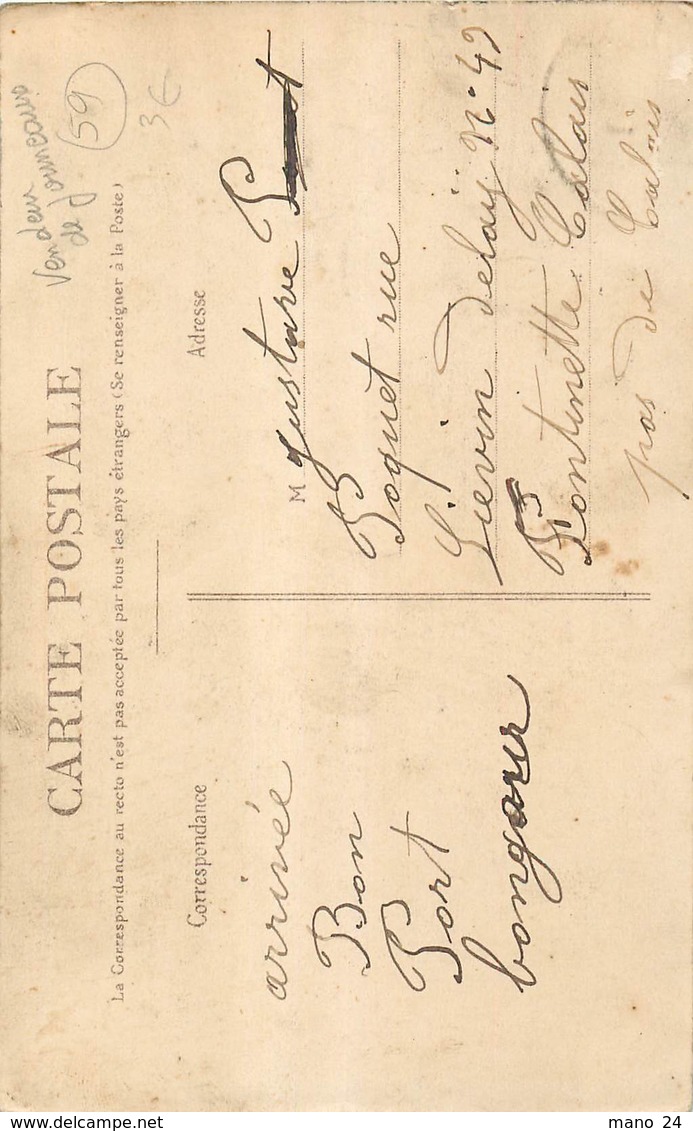 Vendeur
de Journeaux
59
3€
CARTE POSTALE
La Correspondance au recto n'est pas acceptée par tous les pays étrangers (Se renseigner à la Poste)
Correspondance
arrivée
Bon
Port
Adresse
M gustave
Poquet rue
Lievin delaÿ N° 49
Pontinette Calais
pas de Calais
mano 24